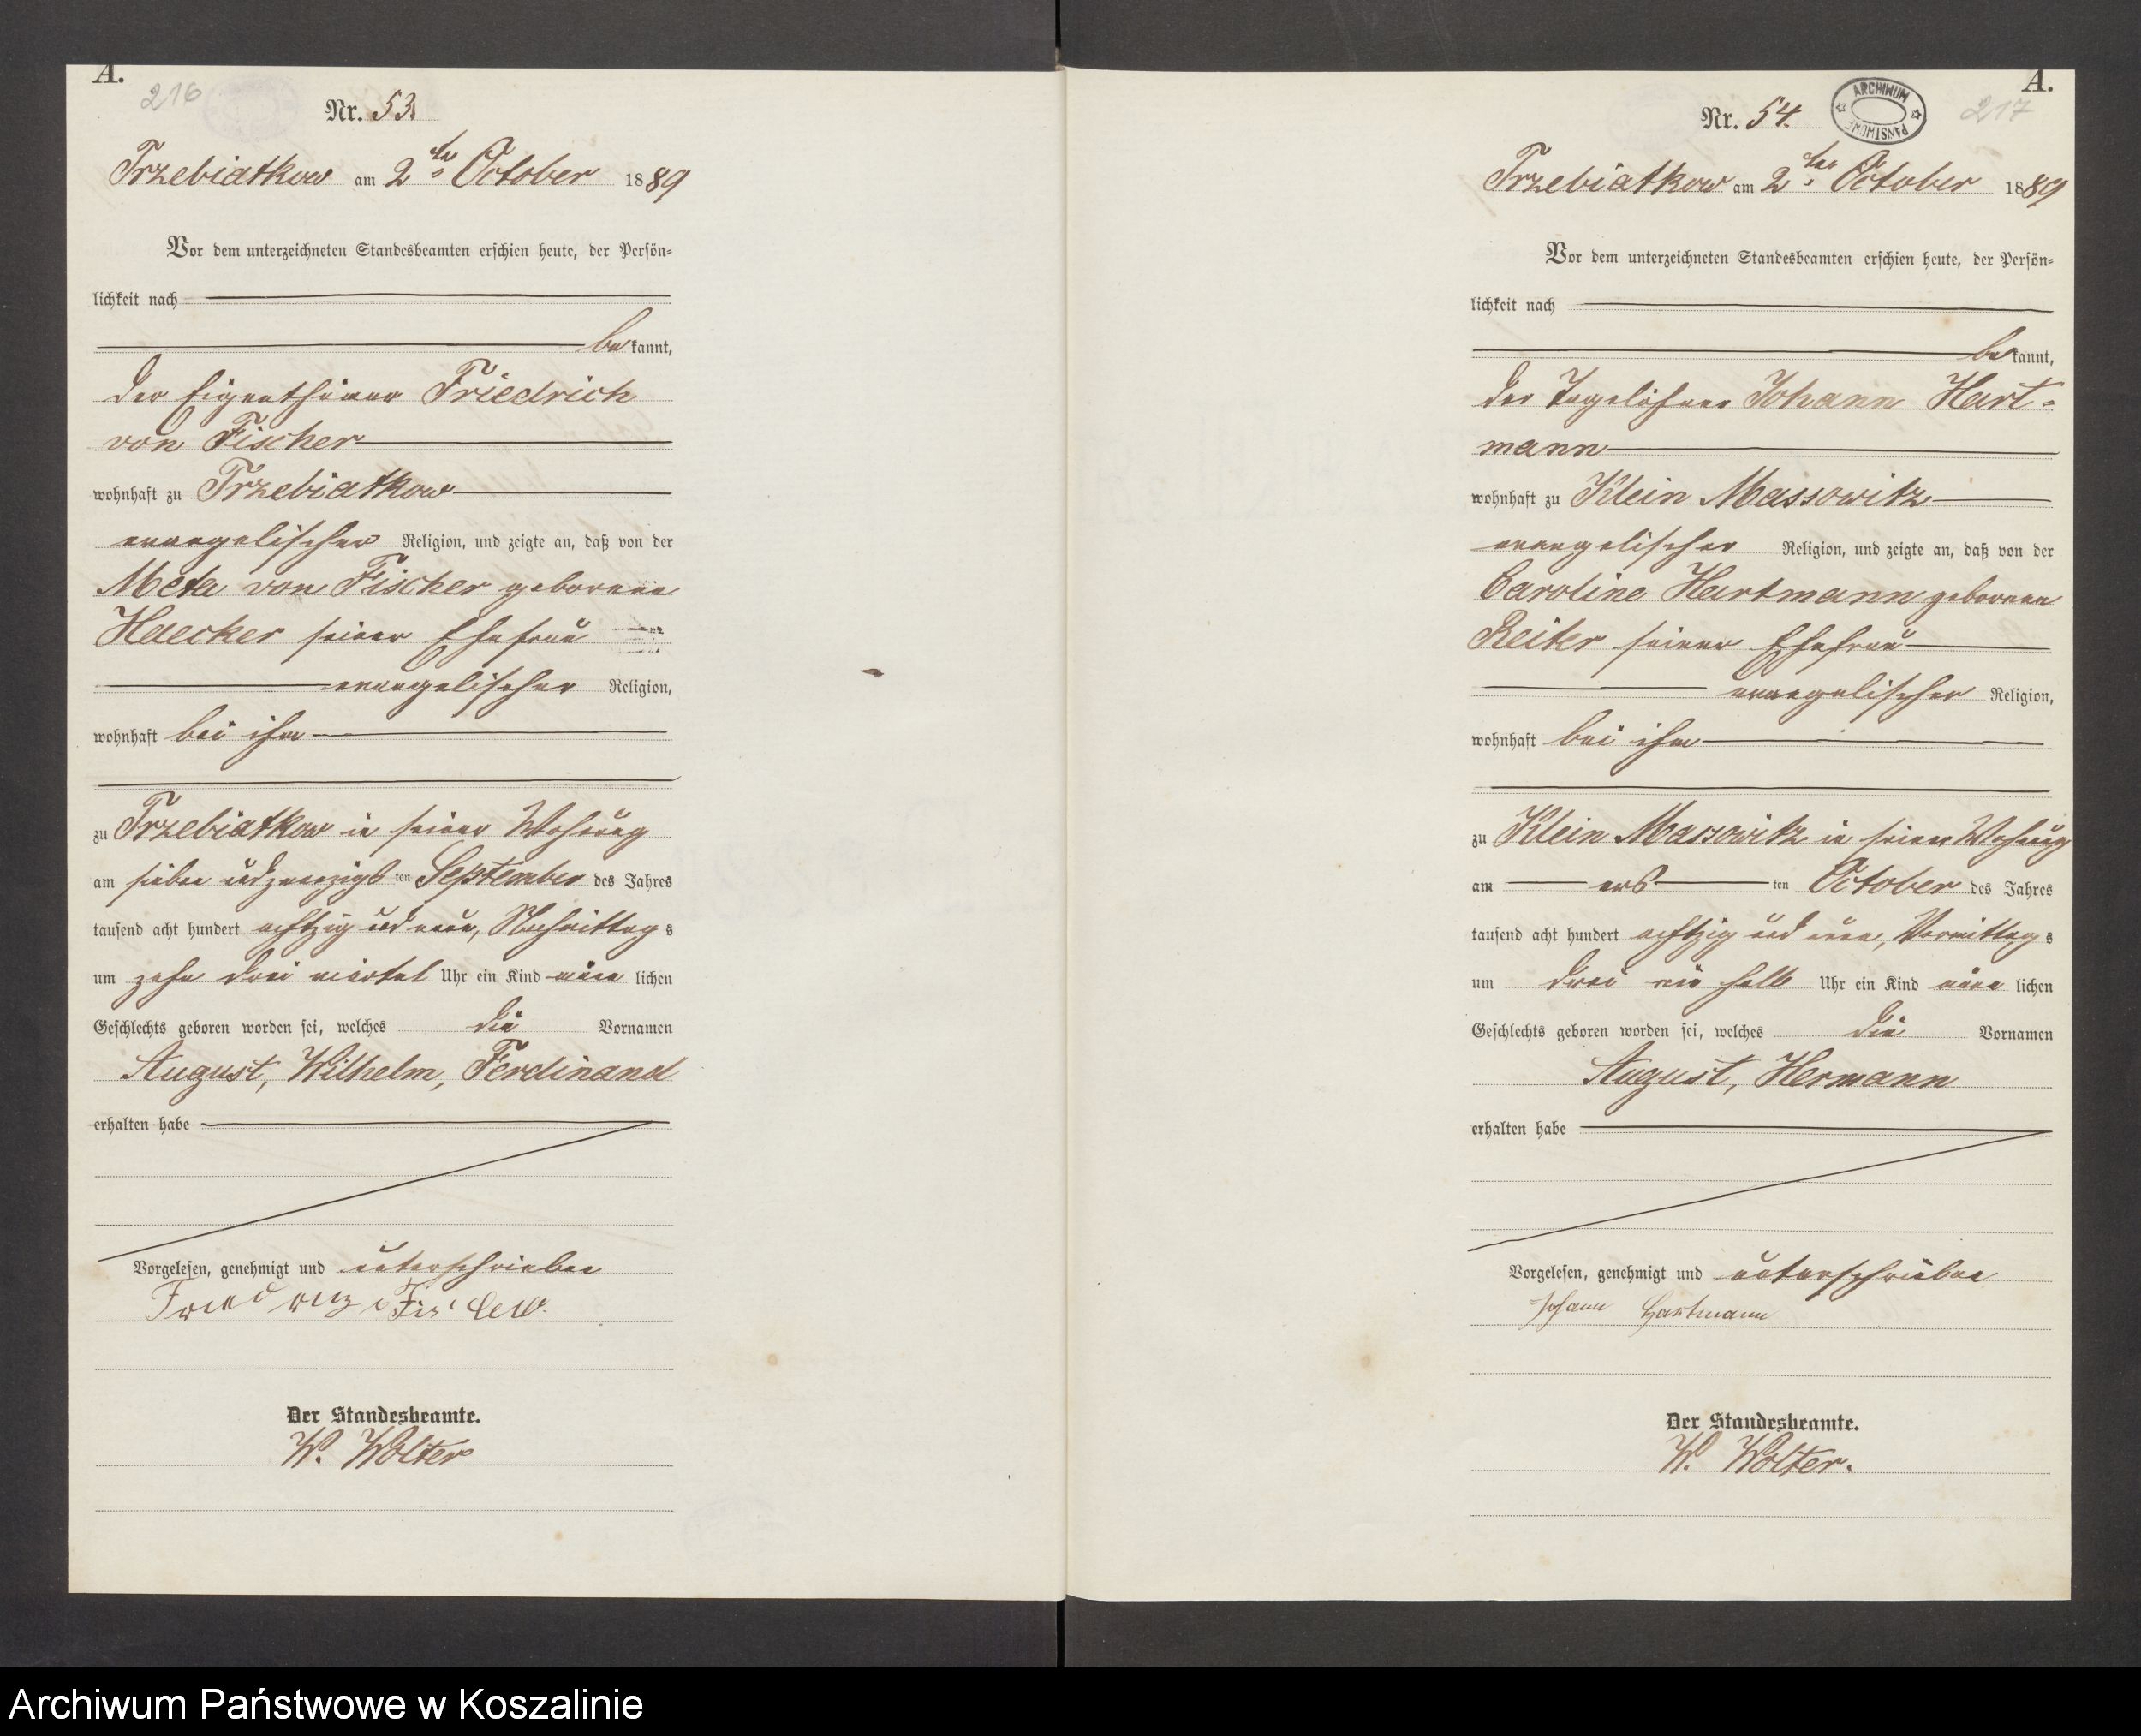 A.
216
Nr. 53.
Trzebiatkow am 2ten October 1889
Vor dem unterzeichneten Standesbeamten erschien heute, der Persön-
lichkeit nach
bekannt,
der Eigenthümer Friedrich
von Fischer
wohnhaft zu Trzebiatkow
evangelischer Religion, und zeigte an, daß von der
Meta von Fischer geborenen
Haecker seiner Ehefrau
evangelischer Religion,
wohnhaft bei ihm
zu Trzebiatkow in seiner Wohnung
am sieben und zwanzigsten September des Jahres
tausend acht hundert achtzig und neun, Nachmittags
um zehn drei viertel Uhr ein Kind männlichen
Geschlechts geboren worden sei, welches die Vornamen
August, Wilhelm, Ferdinand
erhalten habe
Vorgelesen, genehmigt und unterschrieben
Fischer
Der Standesbeamte.
W. Wolter
A.
217
ARCHIWUM PAŃSTWOWE
Nr. 54.
Trzebiatkow am 2ten October 1889
Vor dem unterzeichneten Standesbeamten erschien heute, der Persön-
lichkeit nach
bekannt,
der Tagelöhner Johann Hart-
mann
wohnhaft zu Klein Massowitz
evangelischer Religion, und zeigte an, daß von der
Caroline Hartmann geborenen
Reiter seiner Ehefrau
evangelischer Religion,
wohnhaft bei ihm
zu Klein Massowitz in seiner Wohnung
am ersten October des Jahres
tausend acht hundert achtzig und neun, Vormittags
um drei ein halb Uhr ein Kind männlichen
Geschlechts geboren worden sei, welches die Vornamen
August, Hermann
erhalten habe
Vorgelesen, genehmigt und unterschrieben
Johann Hartmann
Der Standesbeamte.
W. Wolter.
Archiwum Państwowe w Koszalinie